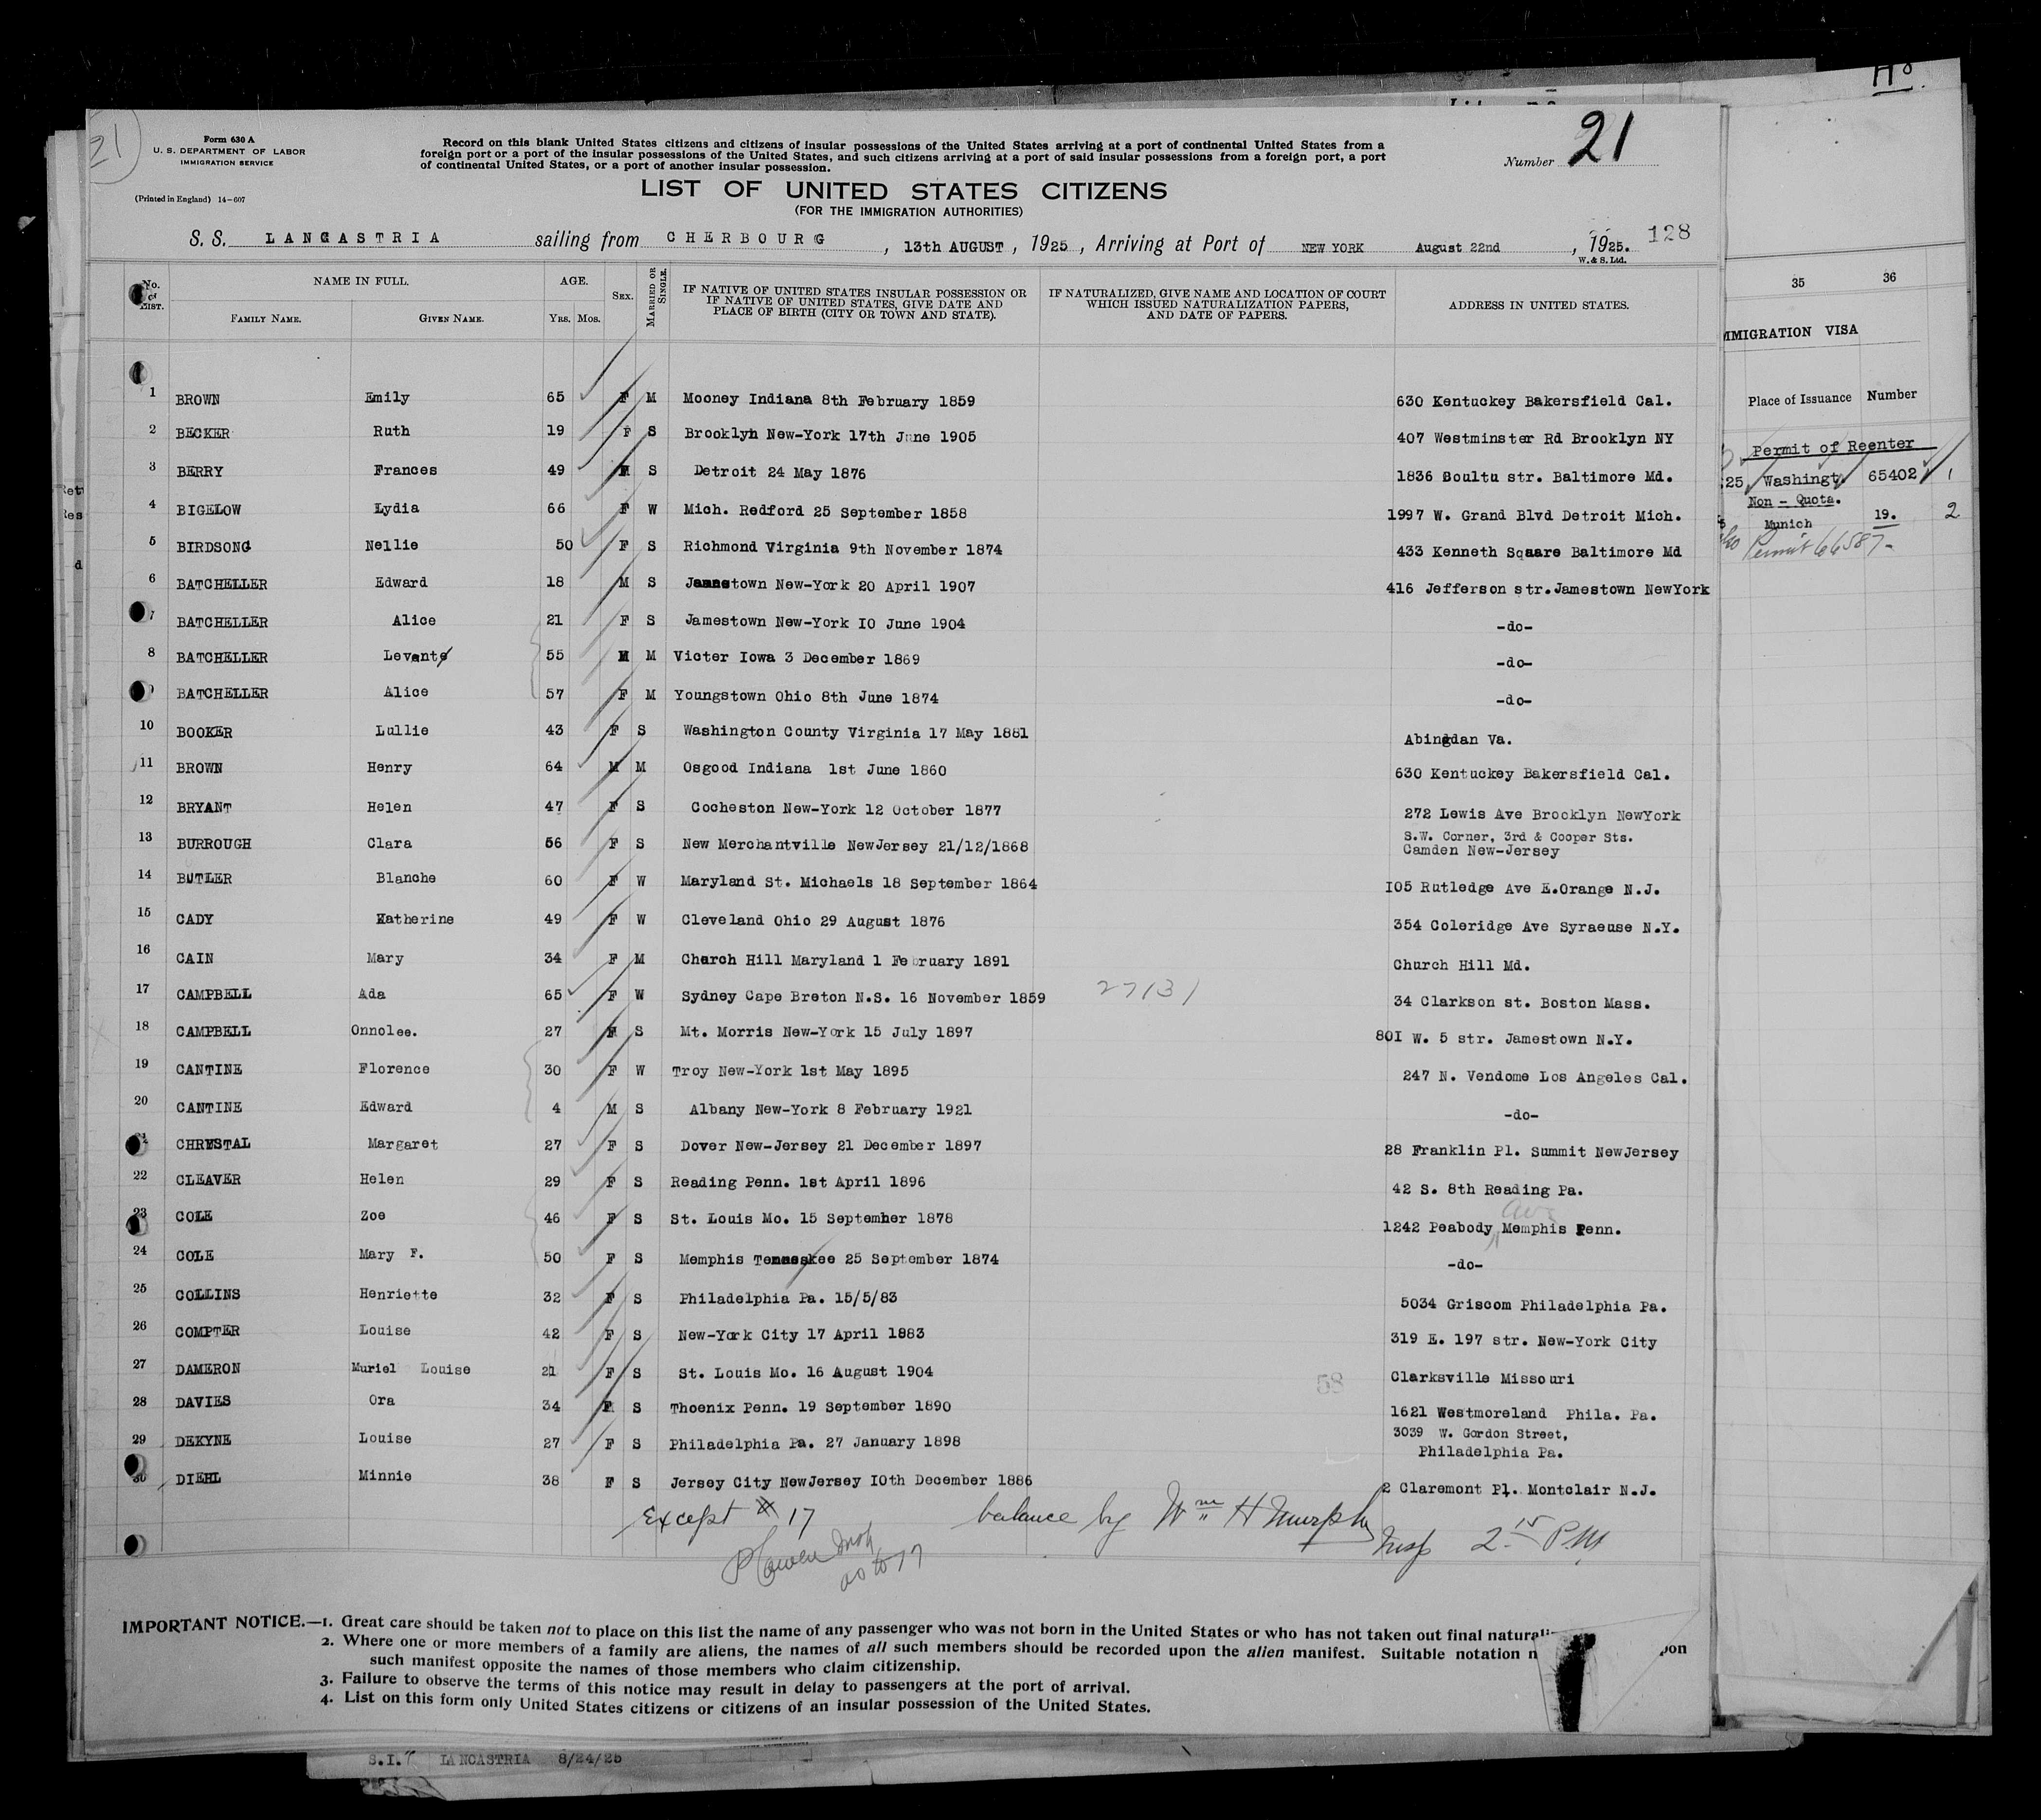 21
Form 630 A
U. S. DEPARTMENT OF LABOR
IMMIGRATION SERVICE
(Printed in England) 14-607
Record on this blank United States citizens and citizens of insular possessions of the United States arriving at a port of continental United States from a
foreign port or a port of the insular possessions of the United States, and such citizens arriving at a port of said insular possessions from a foreign port, a port
of continental United States, or a port of another insular possession.
Number 21
LIST OF UNITED STATES CITIZENS
(FOR THE IMMIGRATION AUTHORITIES)
S. S. LANCASTRIA sailing from CHERBOURG, 13th AUGUST, 1925, Arriving at Port of NEW YORK August 22nd, 1925. 128
W. & S. Ltd.
No. of LIST. NAME IN FULL. AGE. SEX. MARRIED OR SINGLE. IF NATIVE OF UNITED STATES INSULAR POSSESSION OR IF NATIVE OF UNITED STATES, GIVE DATE AND PLACE OF BIRTH (CITY OR TOWN AND STATE). IF NATURALIZED, GIVE NAME AND LOCATION OF COURT WHICH ISSUED NATURALIZATION PAPERS, AND DATE OF PAPERS. ADDRESS IN UNITED STATES.
FAMILY NAME. GIVEN NAME. YRS. MOS.
1 BROWN Emily 65 F M Mooney Indiana 8th February 1859 630 Kentuckey Bakersfield Cal.
2 BECKER Ruth 19 F S Brooklyn New-York 17th June 1905 407 Westminster Rd Brooklyn NY
3 BERRY Frances 49 S Detroit 24 May 1876 1836 Boultu str. Baltimore Md.
4 BIGELOW Lydia 66 F W Mich. Redford 25 September 1858 1997 W. Grand Blvd Detroit Mich.
5 BIRDSONG Nellie 50 F S Richmond Virginia 9th November 1874 433 Kenneth Sqaare Baltimore Md
6 BATCHELLER Edward 18 M S Jamestown New-York 20 April 1907 416 Jefferson str.Jamestown NewYork
7 BATCHELLER Alice 21 F S Jamestown New-York I0 June 1904 -do-
8 BATCHELLER Levante 55 M M Victer Iowa 3 December 1869 -do-
9 BATCHELLER Alice 57 F M Youngstown Ohio 8th June 1874 -do-
10 BOOKER Lullie 43 F S Washington County Virginia 17 May 1881 Abingdan Va.
11 BROWN Henry 64 M M Osgood Indiana 1st June 1860 630 Kentuckey Bakersfield Cal.
12 BRYANT Helen 47 F S Cocheston New-York 12 October 1877 272 Lewis Ave Brooklyn NewYork
13 BURROUGH Clara 56 F S New Merchantville NewJersey 21/12/1868 S.W. Corner, 3rd & Cooper Sts.
Camden New-Jersey
14 BUTLER Blanche 60 F W Maryland St. Michaels 18 September 1864 I05 Rutledge Ave E.Orange N.J.
15 CADY Katherine 49 F W Cleveland Ohio 29 August 1876 354 Coleridge Ave Syraeuse N.Y.
16 CAIN Mary 34 F M Church Hill Maryland 1 February 1891 Church Hill Md.
17 CAMPBELL Ada 65 F W Sydney Cape Breton N.S. 16 November 1859 27131 34 Clarkson st. Boston Mass.
18 CAMPBELL Onnolee. 27 F S Mt. Morris New-York 15 July 1897 80I W. 5 str. Jamestown N.Y.
19 CANTINE Florence 30 F W Troy New-York 1st May 1895 247 N. Vendome Los Angeles Cal.
20 CANTINE Edward 4 M S Albany New-York 8 February 1921 -do-
21 CHRYSTAL Margaret 27 F S Dover New-Jersey 21 December 1897 28 Franklin Pl. Summit NewJersey
22 CLEAVER Helen 29 F S Reading Penn. 1st April 1896 42 S. 8th Reading Pa.
23 COLE Zoe 46 F S St. Louis Mo. 15 September 1878 1242 Peabody Ave Memphis Penn.
24 COLE Mary F. 50 F S Memphis Tenneskee 25 September 1874 -do-
25 COLLINS Henriette 32 F S Philadelphia Pa. 15/5/83 5034 Griscom Philadelphia Pa.
26 COMPTER Louise 42 F S New-York City 17 April 1883 319 E. 197 str. New-York City
27 DAMERON Muriel Louise 21 F S St. Louis Mo. 16 August 1904 58 Clarksville Missouri
28 DAVIES Ora 34 F S Thoenix Penn. 19 September 1890 1621 Westmoreland Phila. Pa.
29 DEKYNE Louise 27 F S Philadelphia Pa. 27 January 1898 3039 W. Gordon Street,
Philadelphia Pa.
30 DIEHL Minnie 38 F S Jersey City NewJersey I0th December 1886 2 Claremont Pl. Montclair N.J.
Except # 17 balance by Wm H Murphy Insp 2.15 PM
as to 17
IMPORTANT NOTICE.—1. Great care should be taken not to place on this list the name of any passenger who was not born in the United States or who has not taken out final
2. Where one or more members of a family are aliens, the names of all such members should be recorded upon the alien manifest. Suitable notation
such manifest opposite the names of those members who claim citizenship.
3. Failure to observe the terms of this notice may result in delay to passengers at the port of arrival.
4. List on this form only United States citizens or citizens of an insular possession of the United States.
S.I. LANCASTRIA 8/24/25
35 36
IMMIGRATION VISA
Place of Issuance Number
Permit of Reenter
25 Washingt. 65402 1
Non - Quota.
Munich 19. 2
Permit 66587-